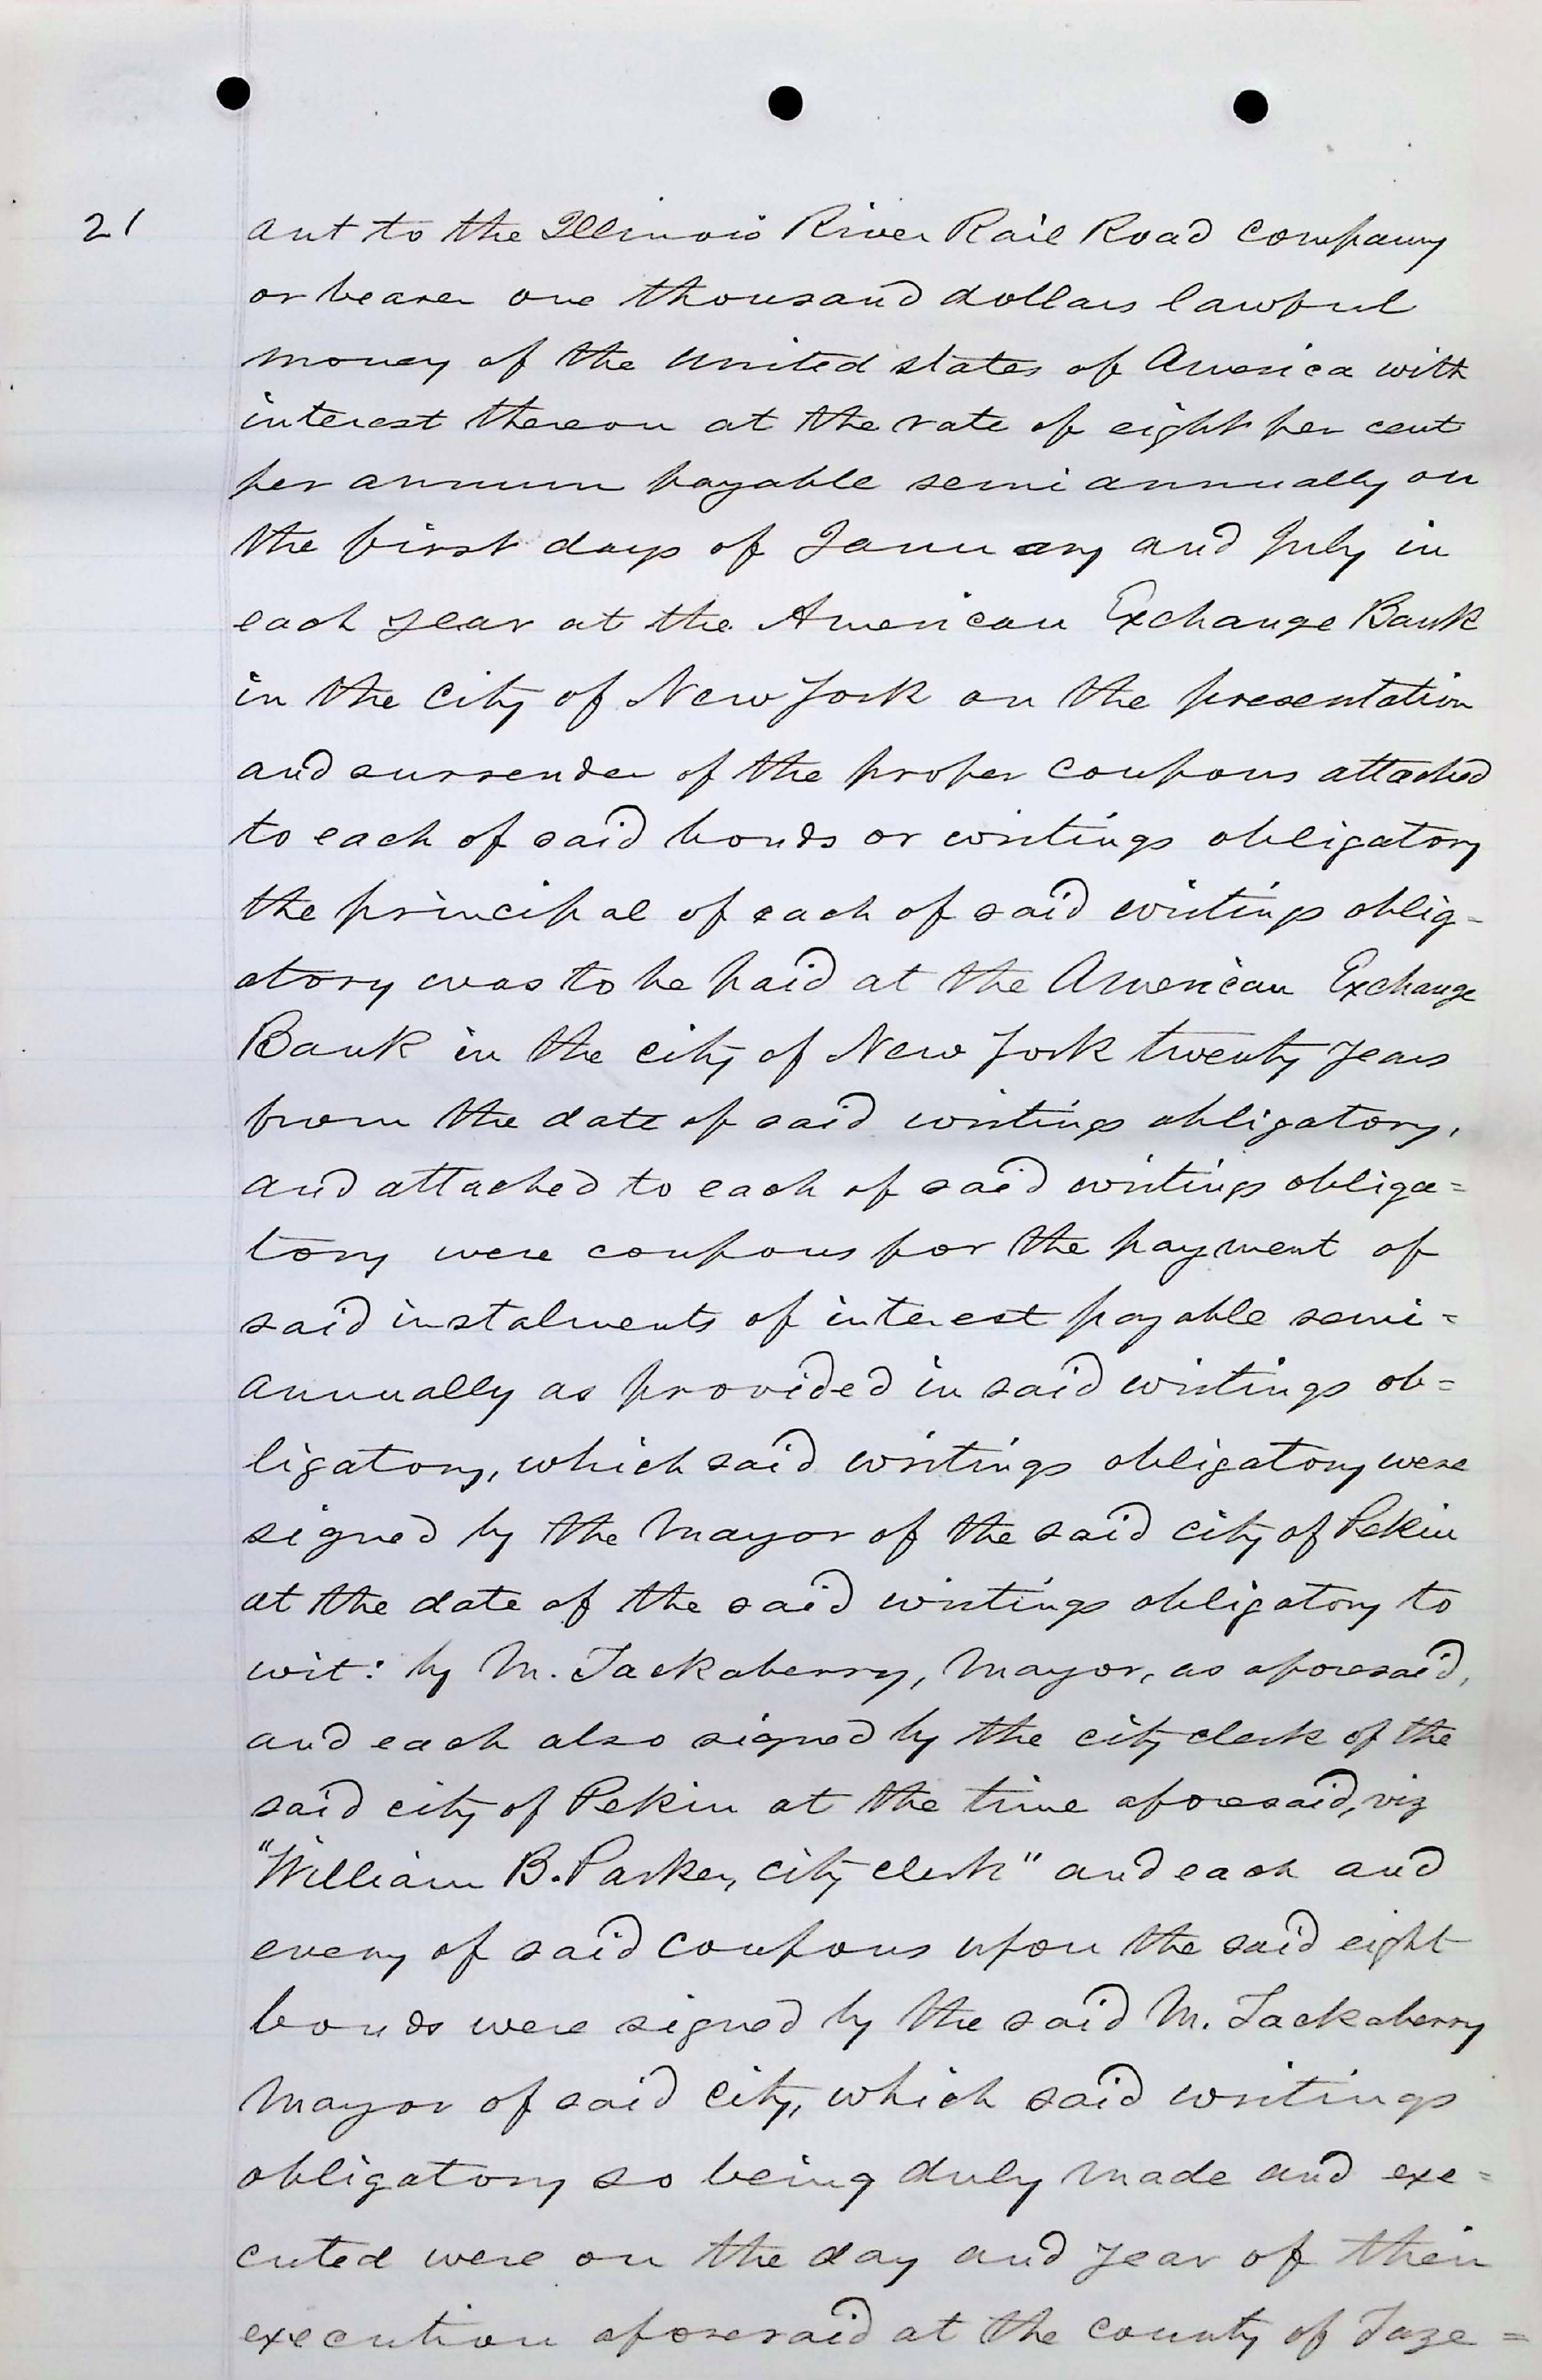 21
ant to the Illinois River Rail Road company
or bearer one thousand dollars lawful
money of the united states of America with
interest thereon at the rate of eight per cent
per annum payable semi annually on
the first days of January and July in
each year at the American Exchange Bank
in the city of New York on the presentation
and surrender of the proper coupons attached
to each of said bonds or writings obligatory
the principal of each of said writings oblig-
atory was to be paid at the American Exchange
Bank in the city of New York twenty years
from the date of said writings obligatory,
and attached to each of said writings obliga=
tory were coupons for the payment of
said instalments of interest payable semi=
annually as provided in said writings ob=
ligatory, which said writings obligatory were
signed by the Mayor of the said city of Pekin
at the date of the said writings obligatory to
wit: by M. Tackaberry, Mayor, as aforesaid,
and each also signed by the city clerk of the
said city of Pekin at the time aforesaid, viz
"William B. Parker, city clerk" and each and
every of said coupons upon the said eight
bonds were signed by the said M. Tackaberry
Mayor of said city, which said writings
obligatory so being duly made and exe=
cuted were on the day and year of their
execution aforesaid at the county of Taze=